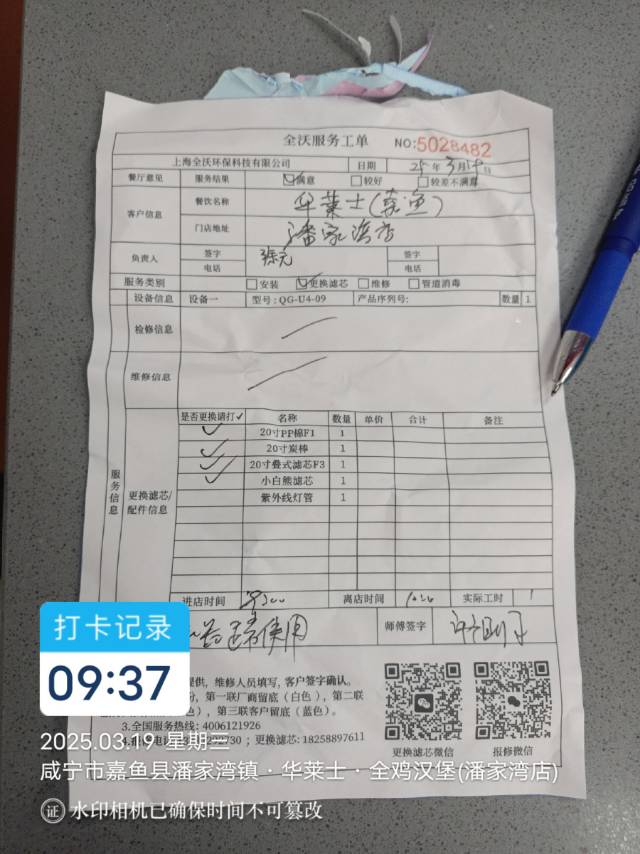 全沃服务工单 NO:5028482
上海全沃环保科技有限公司 日期 25年3月19日
餐厅意见 服务结果 ☑满意 □较好 □较差不满意
客户信息 餐饮名称 华莱士(嘉鱼)
门店地址 潘家湾店
负责人 签字 签字
电话 电话
服务类别 □安装 ☑更换滤芯 □维修 □管道消毒
设备信息 设备一 型号:QG-U4-09 产品序列号: 数量 1
检修信息
维修信息
服务信息
更换滤芯/配件信息
是否更换请打✓ 名称 数量 单价 合计 备注
✓ 20寸PP棉F1 1
✓ 20寸炭棒 1
✓ 20寸叠式滤芯F3 1
小白熊滤芯 1
紫外线灯管 1
进店时间 离店时间 实际工时 1
使用 师傅签字
提供,维修人员填写,客户签字确认。
份,第一联厂商留底(白色),第二联
色),第三联客户留底(蓝色)。
3.全国服务热线:4006121926
2730;更换滤芯:18258897611
更换滤芯微信 报修微信
打卡记录
09:37
2025.03.19 星期三
咸宁市嘉鱼县潘家湾镇·华莱士·全鸡汉堡(潘家湾店)
证 水印相机已确保时间不可篡改